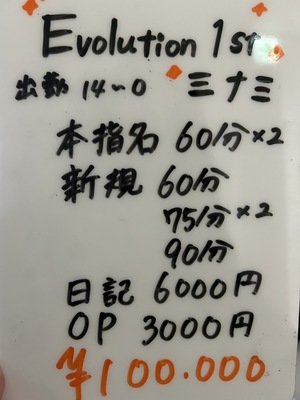 Evolution 1st
出勤 14~0 ミナミ
本指名 60分×2
新規 60分
75分×2
90分
日記 6000円
OP 3000円
¥100.000